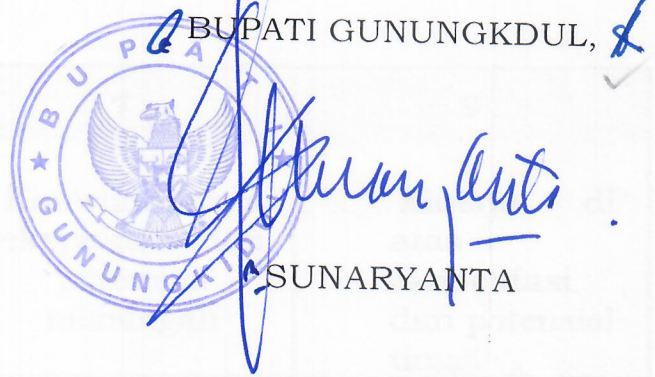 BUPATI GUNUNGKDUL,
BUPATI
GUNUNGKIDUL
Sunaryanta
SUNARYANTA